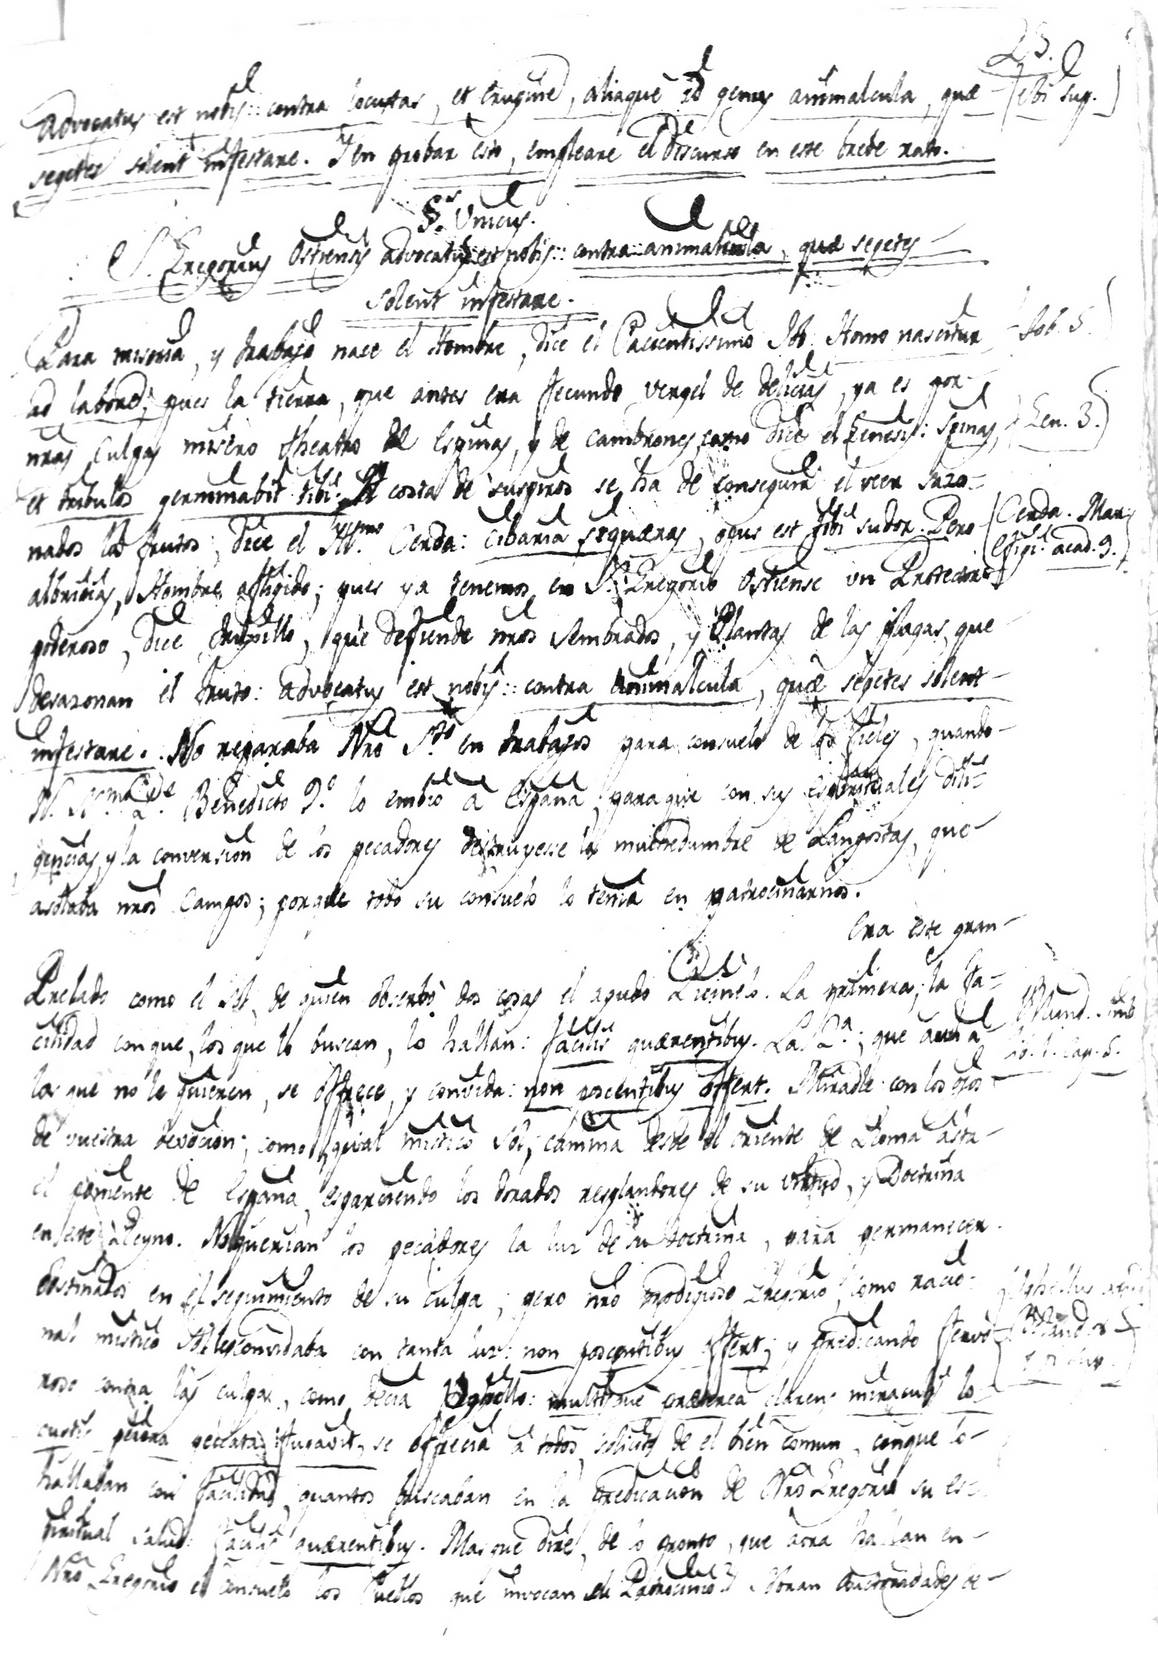 23.
Advocatus est nobis:: contra locustas, et eruginē, aliaque id genus animalcula, quæ (Ubi sup.)
segetes solent infestare. I en probar esto, empleare el Discurso en este brebe rato.
§. Unicus.
S. Gregorius Ostiensis advocatus est nobis:: contra animalcula, quæ segetes
solent infestare.
Para miseria, y trabajo nace el Hombre, dice el Pacientissimo Job: Homo nascitur (Job. 5.)
ad laborē; pues la tierra, que antes era fecundo vergel de delicias, ya es por
nras culpas misero theatro de Espinas, y de cambrones, como dice el Genesis: Spinas, (Gen. 3.)
et tribulos germinabit tibi. A costa de suspiros se ha de conseguir el veer sazo-
nados los frutos, dice el Cerda: Cibaria si quæras, opus est tibi sudor. Pero (Cerda. Mar.
albricias, Hombre afligido; pues ya tenemos en Sn. Gregorio Ostiense un Protector acad. 9.)
poderoso, dice Trugillo, que defiende nros sembrados, y Plantas de las plagas, que
desazonan el fruto: advocatus est nobis:: contra animalcula, quæ segetes solent
infestare. No reparaba Nro Sto. en trabajos para consuelo de los fieles, quando
N. Benedicto 9.º lo embio a España, para que con sus espirituales dili-
gencias, y la conversion de los pecadores destruyesse la muchedumbre de Langostas, que
asolaba nros Campos; porque todo su consuelo lo tenia en patrocinarnos.
Era este gran
Prelado como el Sol, de quien observó dos cosas el agudo Picinelo. La primera; la fa-
cilidad con que, los que lo buscan, lo hallan: facilis quærentibus. La 2.ª; que aun a (Mund. Simb.
los que no le quieren, se offrece, y convida: non poscentibus offert. Miradle con los ojos lib. 1. cap. 5.
de vuestra devocion; como qual mistico Sol, camina desde el oriente de Roma asta
el poniente de España, esparciendo los dorados resplandores de su virtud, y Doctrina
en este Reyno. No querian los pecadores la luz de su doctrina, para permanecer
obstinados en el seguimiento de su culpa; pero nro prodigioso Gregorio, como racio-
nal mistico Sol les convidaba con tanta luz: non poscentibus offert; y predicando fervo-
roso contra las culpas, como decia Ughello: multisque præterea clarens miraculis lo-
custis propter peccata fugavit, se offrecia a todos solicito de el bien comun, conque lo
hallaban con facilidad, quantos buscaban en la predicacion de Nro Gregorio su es-
piritual salud: facilis quærentibus. Mas que diré, de lo pronto, que aora hallan en
Nro Gregorio el consuelo los Pueblos que invocan su Patrocinio?